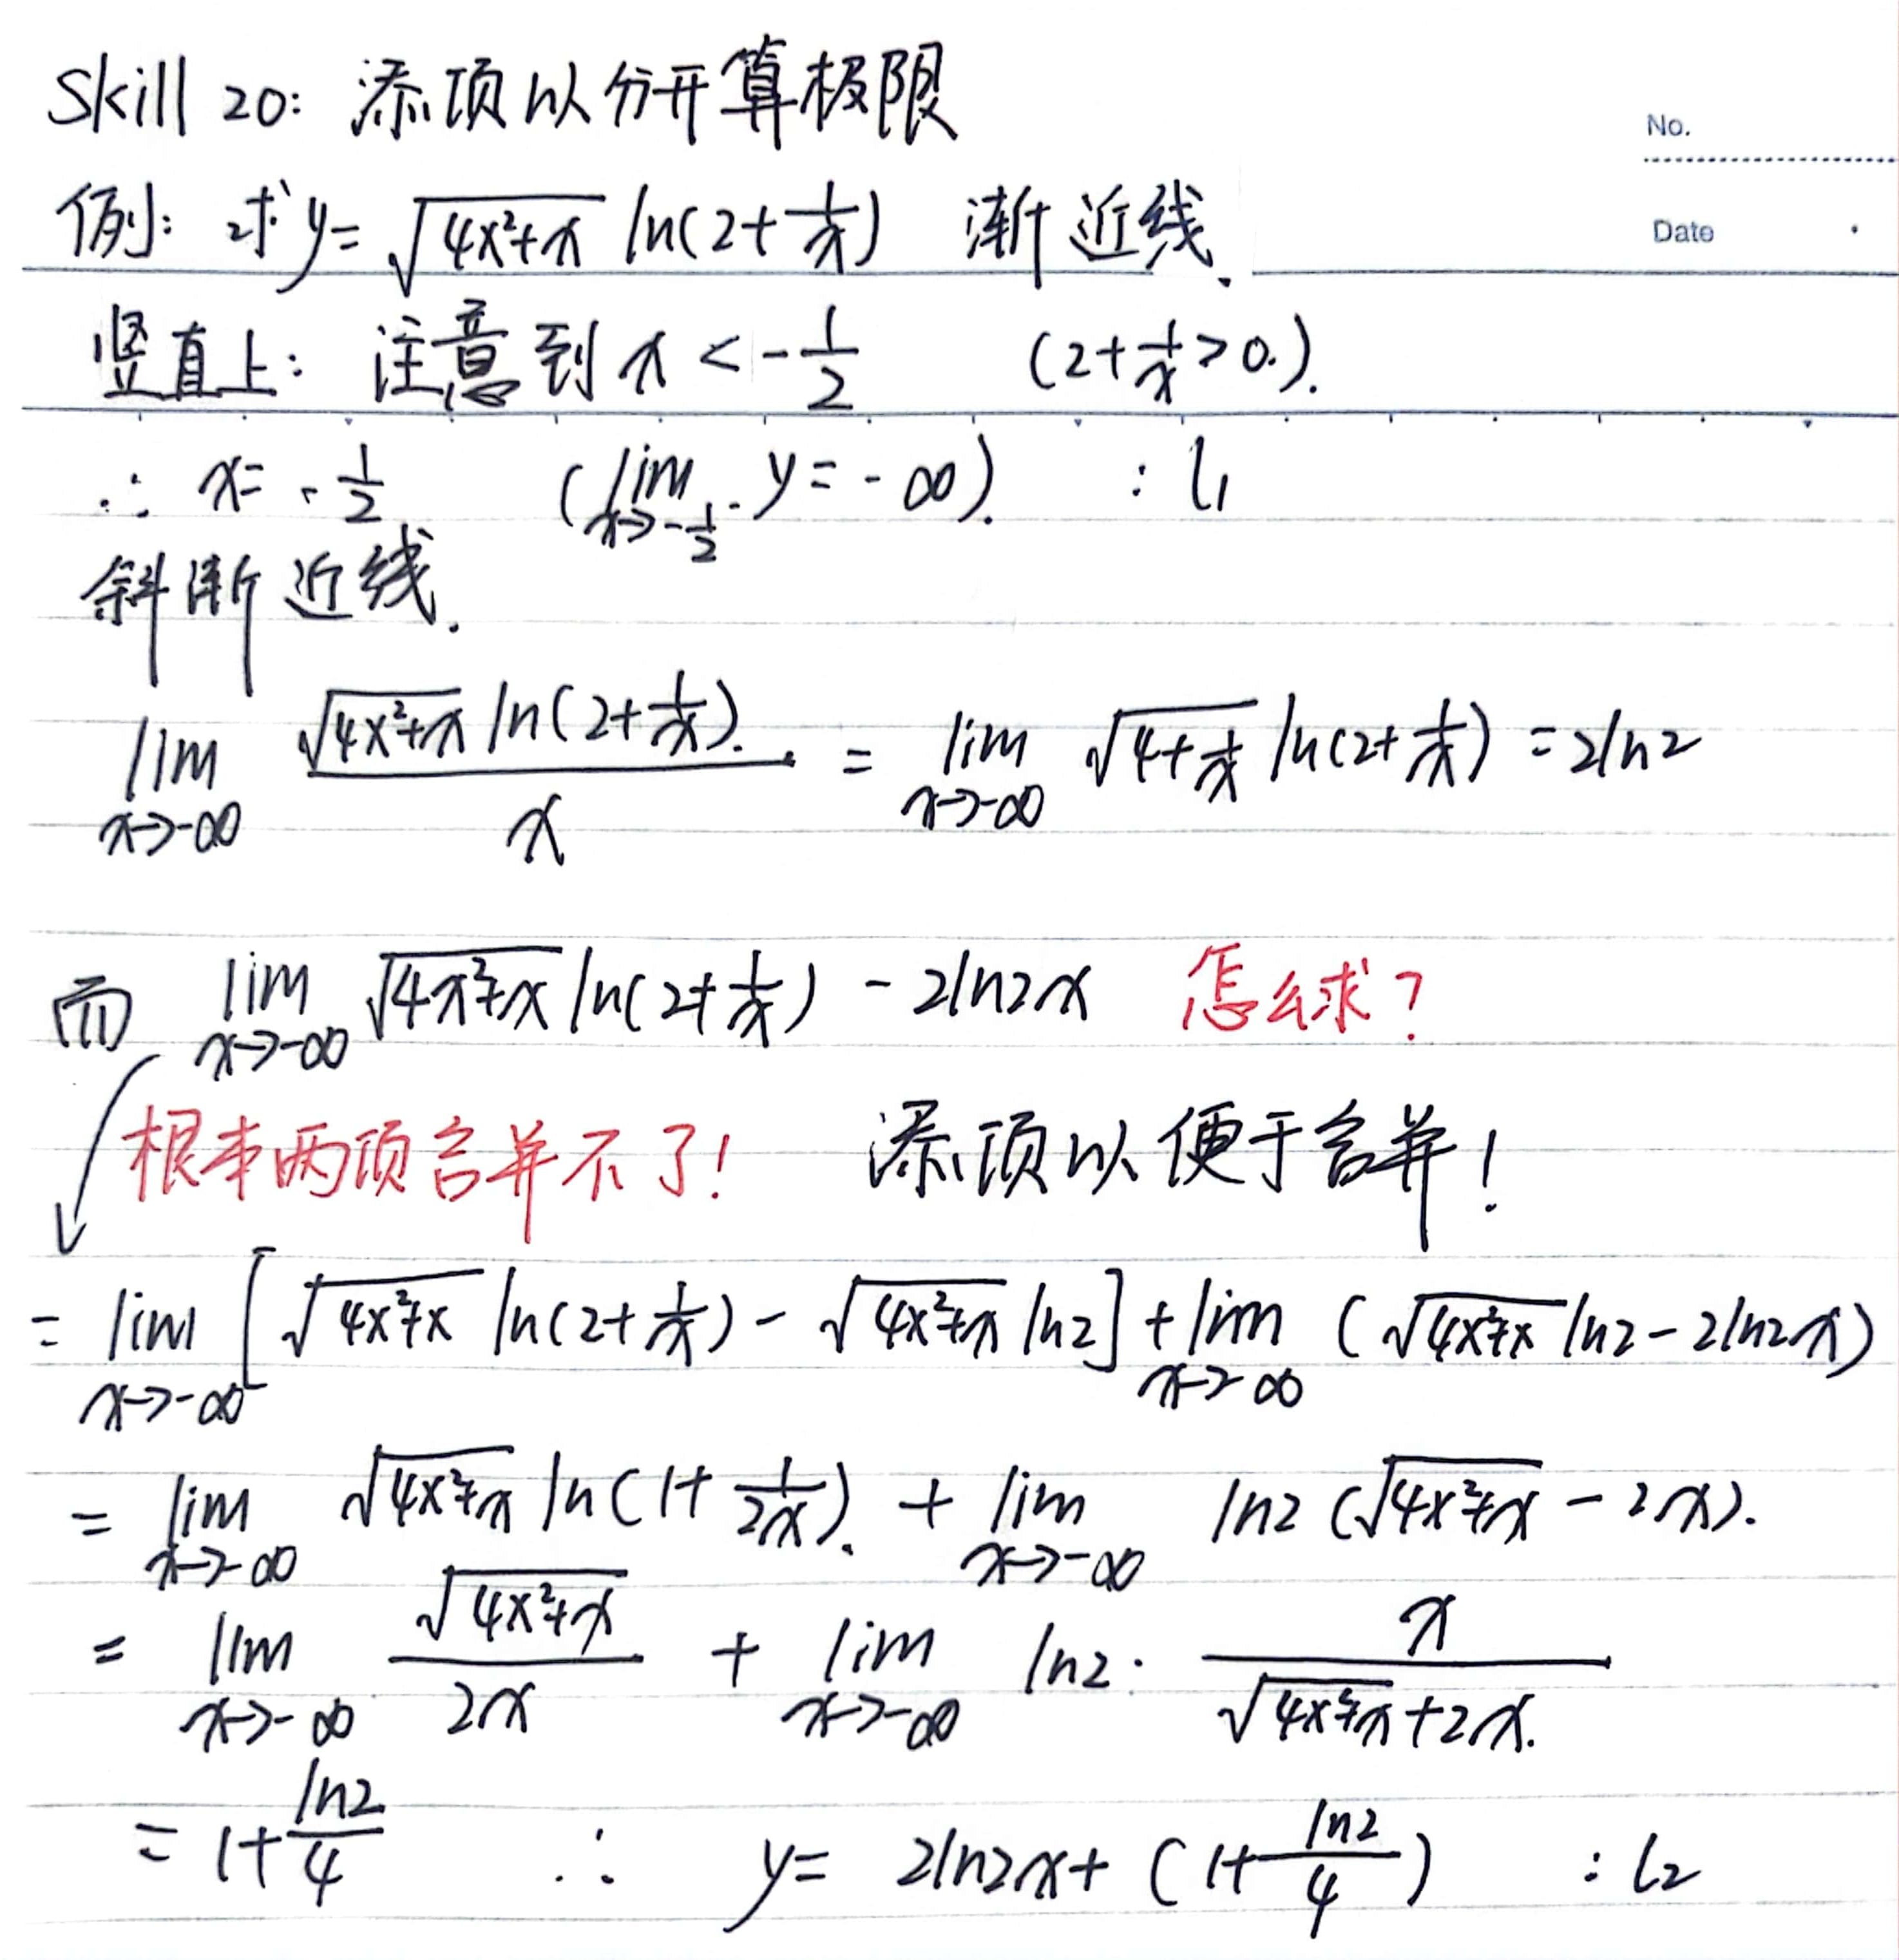 Skill 20: 添项以分开算极限
No.
例: 求 y = √(4x²+x) ln(2+1/x) 渐近线.
Date
竖直上: 注意到 x < -1/2 (2+1/x>0.).
∴ x = -1/2 (lim x→-1/2⁻ y = -∞). : l₁
斜渐近线.
lim x→-∞ √(4x²+x) ln(2+1/x) / x = lim x→-∞ √(4+1/x) ln(2+1/x) = 2ln2
而 lim x→-∞ √(4x²+x) ln(2+1/x) - 2ln2x 怎么求?
根本两项合并不了! 添项以便于合并!
= lim x→-∞ [√(4x²+x) ln(2+1/x) - √(4x²+x) ln2] + lim x→-∞ (√(4x²+x) ln2 - 2ln2x)
= lim x→-∞ √(4x²+x) ln(1+1/2x). + lim x→-∞ ln2 (√(4x²+x) - 2x).
= lim x→-∞ √(4x²+x) / 2x + lim x→-∞ ln2 · x / (√(4x²+x) + 2x.)
= 1+ln2/4 ∴ y = 2ln2x + (1+ln2/4) : l₂